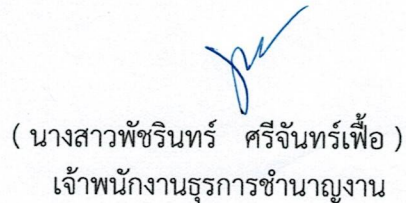 ( นางสาวพัชรินทร์ ศรีจันทร์เฟื้อ )
เจ้าพนักงานธุรการชำนาญงาน